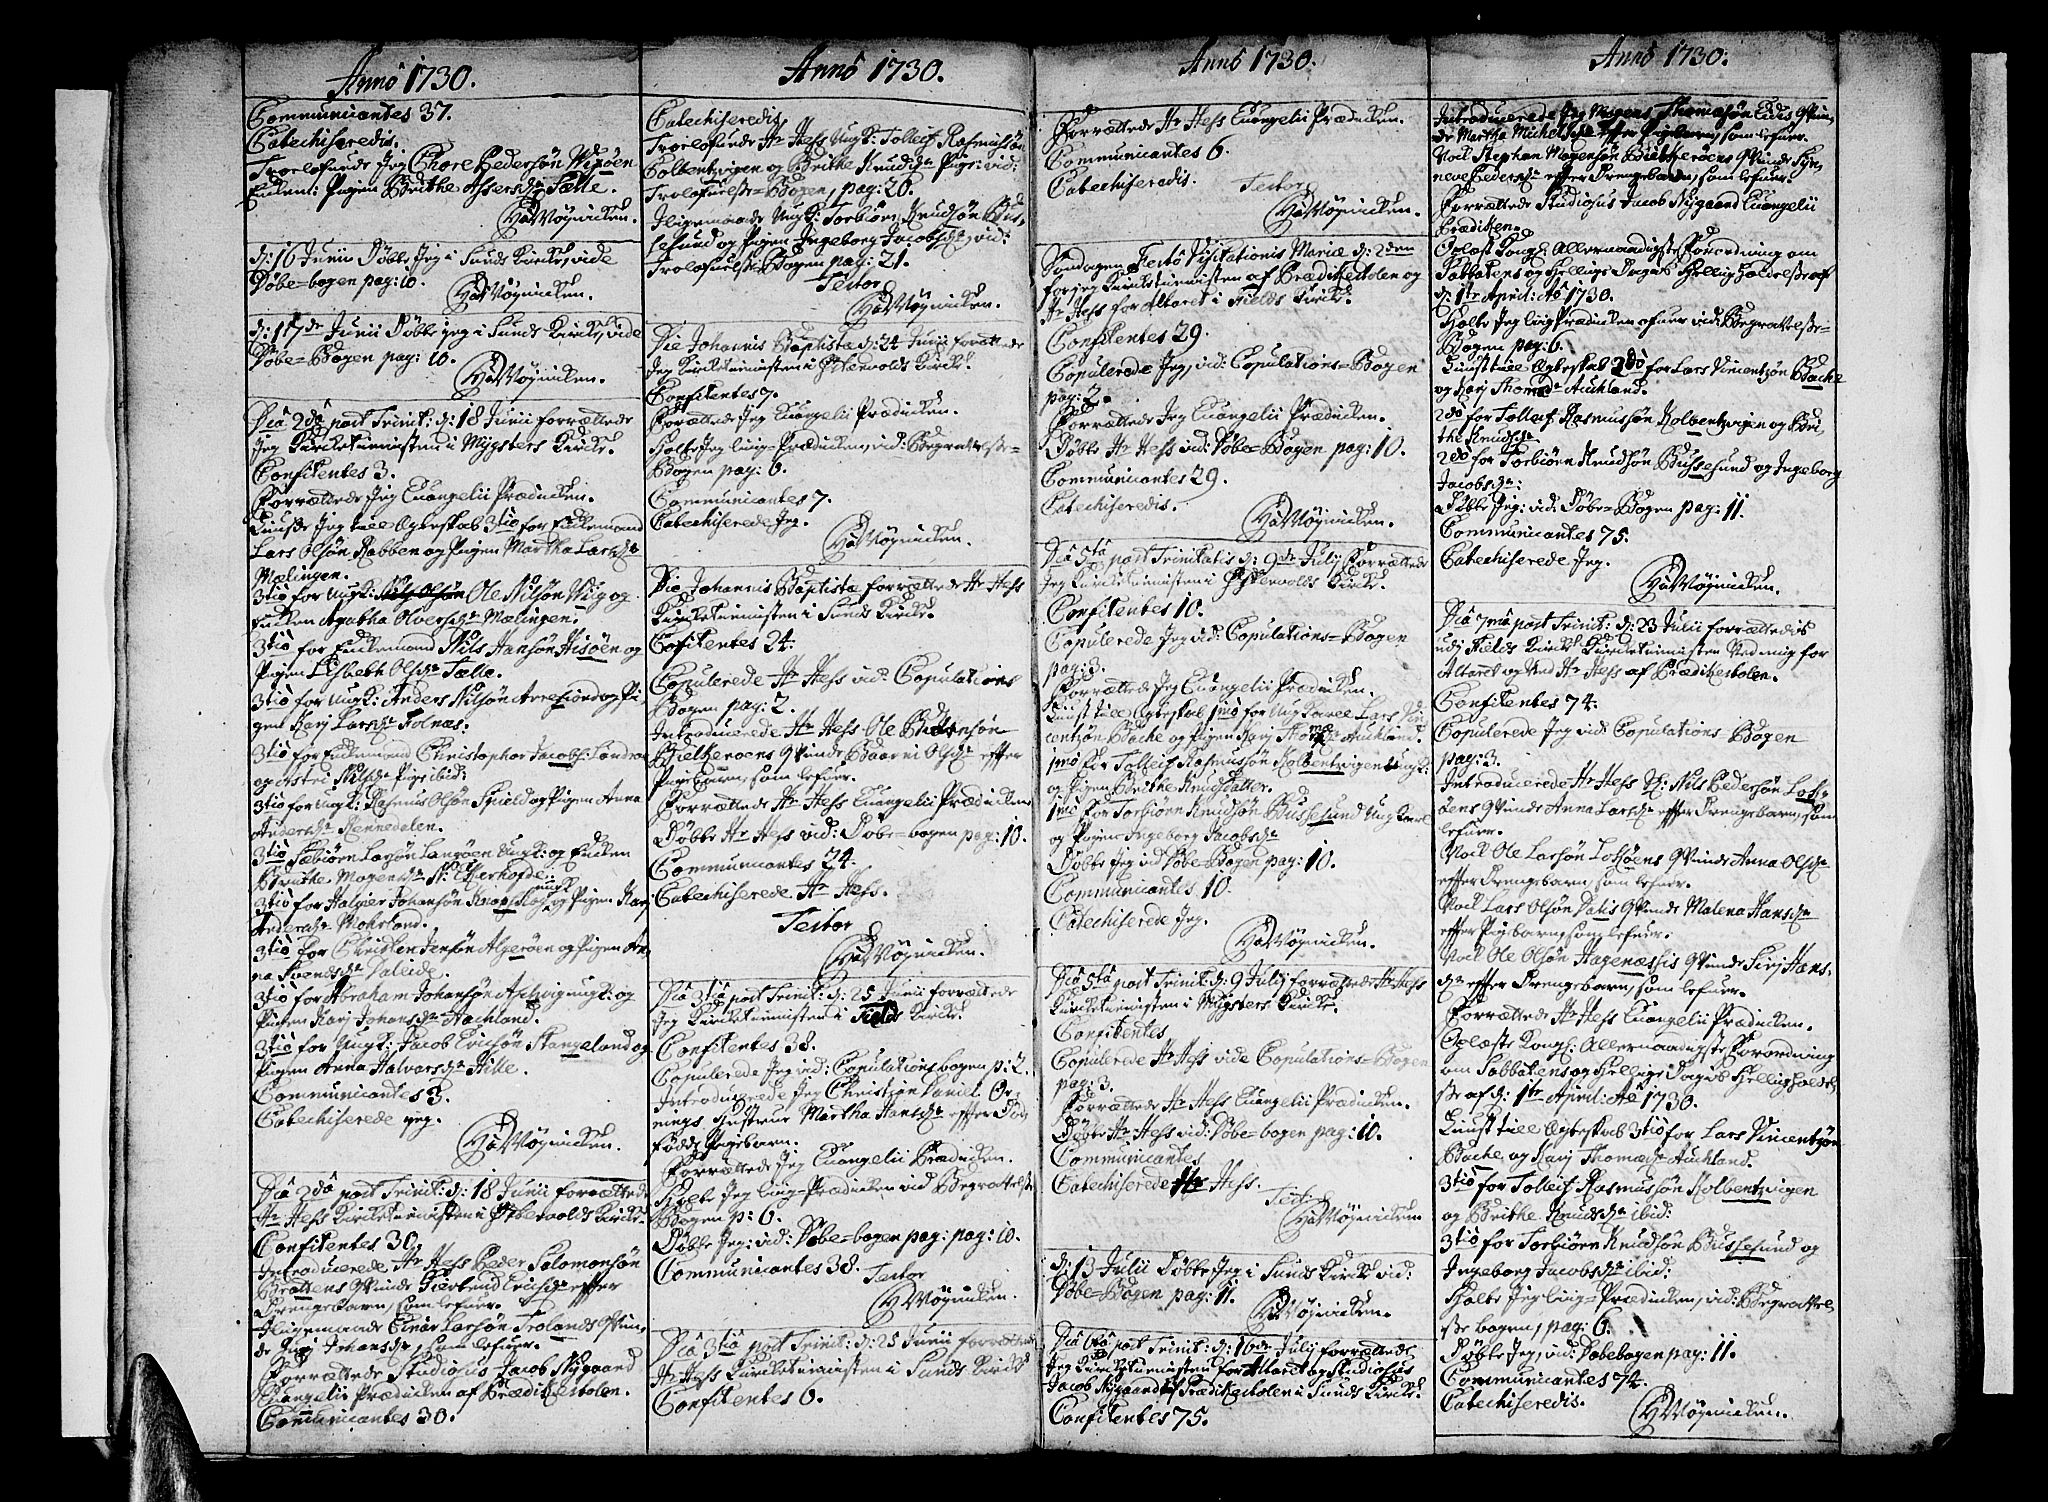 Anno 1730.
Communicantes 37.
Catechiseredis.
Trolofvede Jeg Thore Pedersøn
Enken: Pigen Brithe Assersdr. Sætle.
HMøgnicken.
d: 16 Junii Døbte Jeg i Sunds Kircke, vide
Døbe-bogen pag: 10.
HMøgnicken.
d: 17de Junii Døbte jeg i Sunds Kircke, vide
Døbe-Bogen pag: 10.
HMøgnicken.
Dîa 2dâ post Trinit: d: 18 Junii forrættede
Jeg Kircketienisten i Mygsters Kircke.
Confitentes 3.
Forrættede Jeg Evangelii Prædicken.
Liuste Jeg till Egteskab 3tio for Enckemand
Lars Olsøn Rabben og Pigen Martha Larsdr.
Mælingen.
3tio for Ungk: Ole Nilsøn Vig og
Encken Agatha Olversdr. Mælingen.
3tio for Enckemand Nils Hansøn Hisøen og
Pigen Lisbeth Olsdr. Sætle.
3tio for Ungk: Anders Nilsøn Arrefiord og Pi-
gen Karj Larsdr. Folnæs.
3tio for Enckemand Christopher Jacobs: Landro
og Astri Nilsdr. Pige ibid:
3tio for Ungk: Rasmus Olsøn Spield og Pigen Anna
Andersdr. Rennedalen.
3tio Sæbiørn Larsøn Langøen Ungk: og Encken
Brithe Mogensdr. N:
3tio for Halgier Johansøn og Pigen Karj
Andersdr. Mohrland.
3tio for Christen Jensøn Algerøen og Pigen An-
na Svendsdr. Valeide.
3tio for Abraham Johansøn ungk: og
Pigen Karj Johansdr. Hachland.
3tio for Ungk: Jacob Ericsøn Stangeland og
Pigen Anna Halvorsdr. Hille.
Communicantes 3.
Catechiserede jeg.
HMøgnicken.
Dîa 2dâ post Trinit: d: 18 Junii forrættede
Hr. Hess Kircketienisten i Østervolds Kircke.
Confitentes 30.
Introducerede Hr. Hess Peder Salomonsøn
Brattens Qvinde efter
Drengebarn, som lefver.
Iligemaade Einar Larsøn Trolands Qvin-
de Johansdr, som lefver.
Forrættede Studiosus Jacob Nygaard
Evangelii Prædicken af Prædickestolen.
Communicantes 30.
Anno 1730.
Catechiseredis.
Trolofvede Hr. Hess Ungk: Tolleif Rasmusøn
Kolbentvigen og Brithe Knudsdr. Pige: vid:
Trolofvelse-Bogen, pag: 20.
Iligemaade Ungk: Torbiørn Knudsøn Bus-
sesund og Pigen Ingeborg Jacobsdr, vid:
Trolofvelse Bogen pag: 21.
Testor
HMøgnicken.
Die Johannis Baptistæ d: 24 Junii forrættede
Jeg Kircketienisten i Østervolds Kircke.
Confitentes 7.
Forrættede Jeg Evangelii Prædicken.
Holte Jeg liig-Prædicken, vid: Begravelse-
Bogen pag: 6.
Communicantes 7.
Catechiserede Jeg.
HMøgnicken.
Die Johannis Baptistæ forrættede Hr. Hess
Kircketienisten i Sunds Kircke.
Cofitentes 24.
Copulerede Hr. Hess vid: Copulations
Bogen pag: 2.
Introducerede Hr. Hess Ole
Bielkerøens Qvinde Olsdr. efter
Pigebarn, som lefver.
Forrættede Hr. Hess Evangelii Prædicken
Døbte Hr. Hess vid: Døbe-bogen pag: 10.
Communicantes 24.
Catechiserede Hr. Hess.
Testor
HMøgnicken.
Dîa 3tiâ post Trinit: d: 25 Junii forrættede
Jeg Kircketienisten i Fields Kircke.
Confitentes 38.
Copulerede Jeg vid: Copulationsbogen p: 2.
Introducerede Jeg Christian Daniel Or-
nings Hustrue Martha Hansdr. efter Død-
fødd Pigebarn.
Forrættede Jeg Evangelii Prædicken.
Holte Jeg liig-Prædicken vid Begravelse
Bogen p: 6.
Døbte Jeg: vid: Døbe-bogen pag: pag: 10.
Communicantes 38.
Testor
HMøgnicken.
Dîa 3tiâ post Trinit: d: 25 Junii forrættede
Hr. Hess Kircketienisten i Sunds Kircke
Confitentes 6.
Anno 1730.
Forrættede Hr. Hess Evangelii Prædicken.
Communicantes 6.
Catechiseredis.
Testor
HMøgnicken.
Søndagen Festo Visitationis Mariæ d: 2den
for jeg Kircketienisten af Prædickestolen og
Hr. Hess for Altaret i Fields Kircke.
Confitentes 29.
Copulerede Jeg, vid: Copulations-Bogen
pag: 2.
Forrættede Jeg Evangelii Prædicken.
Døbte Hr. Hess vid: Døbe-Bogen pag: 10.
Communicantes 29.
Catechiseredis.
HMøgnicken.
Dîa 5tâ post Trinitatis d: 9de Julij Forrættede
Jeg Kircketienisten i Østervolds Kircke.
Confitentes 10.
Copulerede Jeg vid: Copulations-Bogen
pag: 3.
Forrættede Jeg Evangelii Prædicken.
Liust till Egteskab 1mo for Ungkarl Lars Vin-
centzøn Bache og Pigen Karj Auchland.
1mo for Tolleif Rasmusøn Kolbentvigen Ungk:
og Pigen Brithe Knudsdatter.
1mo for Torbiørn Knudsøn Bussesund Ungkarl
og Pigen Ingeborg Jacobsdr.
Døbte jeg vid Døbe-Bogen pag: 10.
Communicantes 10.
Catechiserede Jeg.
HMøgnicken.
Dîa 5tâ post Trinit: d: 9 Julij forrættede Hr. Hess
Kircketienisten i Mygsters Kircke.
Confitentes
Copulerede Hr. Hess vide Copulations-Bogen
pag: 3.
Forrættede Hr. Hess Evangelii Prædicken.
Døbte Hr. Hess vid: Døbe-bogen pag: 10.
Communicantes
Catechiserede Hr. Hess.
Testor
HMøgnicken
d: 13 Julii Døbte Jeg i Sunds Kircke vid:
Døbe-Bogen pag: 11.
HMøgnicken.
Dîa 6tâ post Trinit: d: 16de Julij forrættede
Jeg Kircketienisten for Altaret og Studiosus
Jacob Nygaard af Prædickestolen i Sunds Kircke.
Confitentes 75.
Anno 1730.
Introducerede Jeg Mogens Thomasøn Eides Qvin-
de Martha Michelsdr. efter Pigebarn, som lefver.
Noch Stephan Mogensøn Bielkerøens Qvinde Syn-
neve Pedersdr. efter Drengebarn, som lefver.
Forrættede Studiosus Jacob Nygaard Evangelii
Prædicken.
Oplæst Kongl: Allernaadigste Forordning om
Sabbatens og Hellige Dages Helligholdelse af
d: 1te April: Aô 1730.
Holte Jeg liig Prædicken ofver vid: Begravelse-
Bogen pag: 6.
Liust till Egteskab 2do for Lars Vincentzøn Bache
og Karj Thomædr. Auchland.
2do for Tolleif Rasmusøn Kolbentvigen og Bri-
the Knudsdr.
2do for Torbiørn Knudsøn Bussesund og Ingeborg
Jacobsdr:
Døbte Jeg: vid: Døbe-Bogen pag: 11.
Communicantes 75.
Catechiserede Jeg.
HMøgnicken.
Dîa 7mâ post Trinit: d: 23 Julii forrættedis
udj Fields Kircke Kircketienisten Ved mig for
Altaret og Ved Hr. Hess af Prædickestolen.
Confitentes 74.
Copulerede Jeg vid: Copulations Bogen
pag: 3.
Introducerede Hr. Hess Nils Pedersøn
Qvinde Anna Larsdr. efter Drengebarn, som
lefver.
Noch Ole Larsøn Qvinde Anna Olsdr.
efter Drengebarn, som lefver.
Noch Lars Olsøn Qvinde Malena Hansdr.
efter Pigebarn, som lefver.
Noch Ole Olsøn Hagenæssis Qvinde Sirj Hans-
dr. efter Drengebarn, som lefver.
Forrættede Hr. Hess Evangelii Prædicken.
Oplæste Kongl: Allernaadigste Forordning
om Sabbatens og Hellige Dages Helligholdel-
se af d: 1te April: Aô 1730.
Liust till Egteskab 3tio for Lars Vincentzøn
Bache og Karj Thomædr. Auchland.
3tio for Tolleif Rasmusøn Kolbentzvigen
og Brithe Knudsdr. ibid:
3tio for Torbiørn Knudsøn Bussesund og
Ingeborg Jacobsdr. ibid:
Holte Jeg liig-Prædicken, vid: Begravel-
se bogen, pag: 6.
Døbte Jeg, vid: Døbebogen pag: 11.
Communicantes 74.
Catechiseredis.
HMøgnicken.